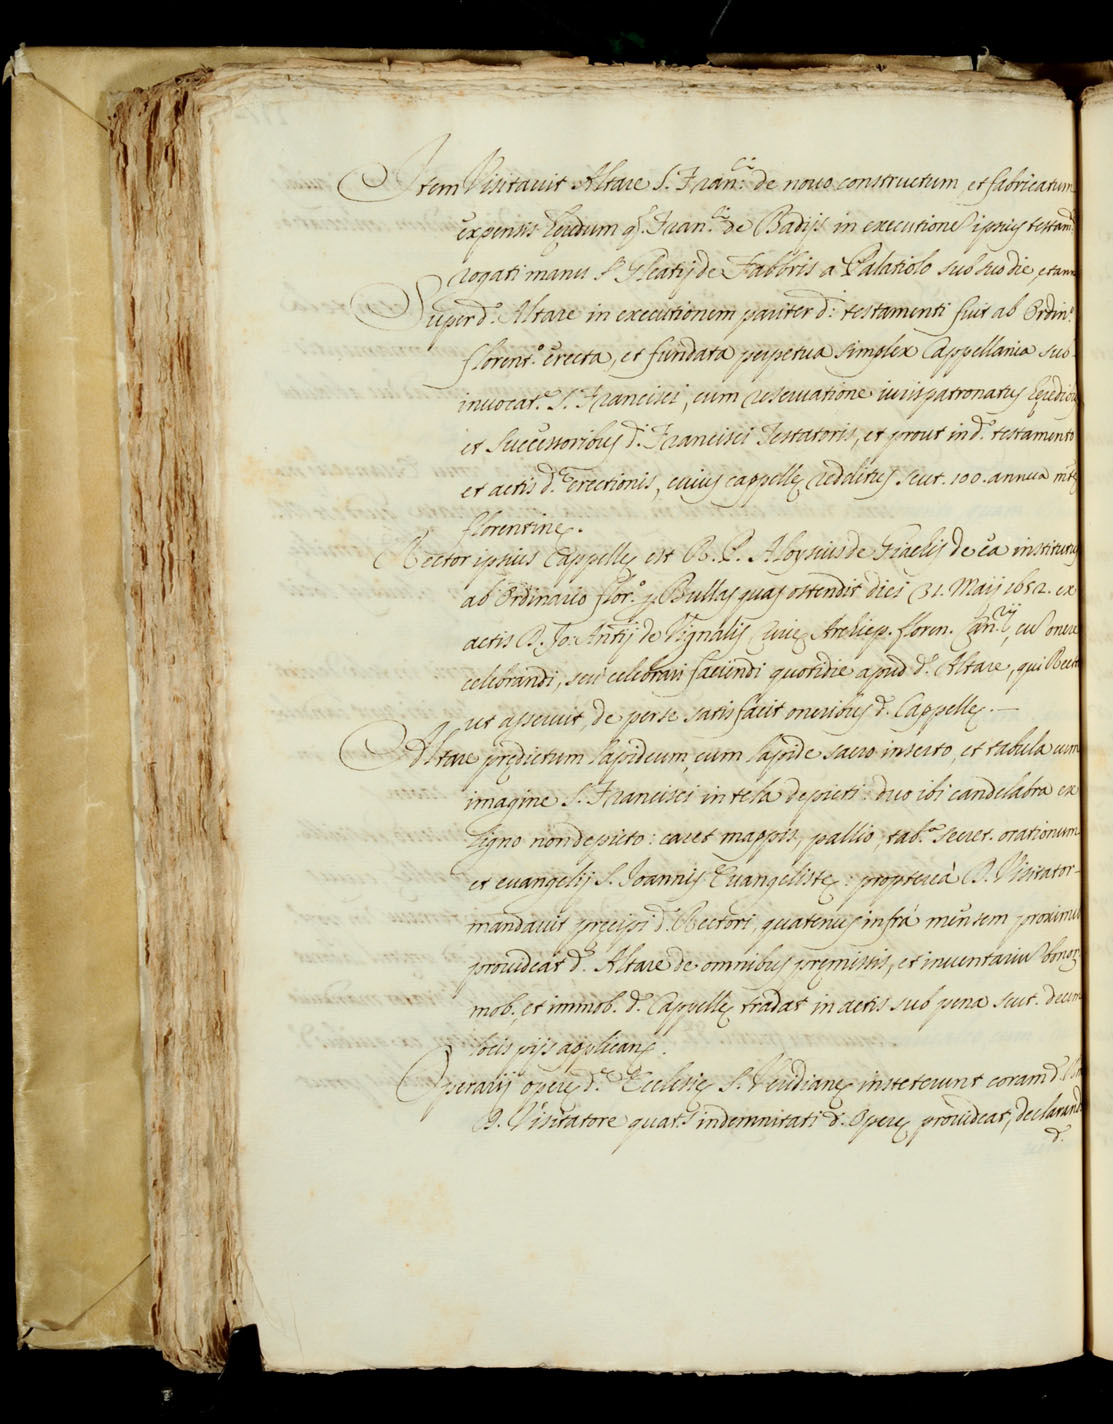 Item Visitavit Altare S. Fran.ci de novo constructum, et fabricatum
expensis hęredum q. Fran.ci de Badijs in executione ipsius testam.ti
rogati manu de Fabbris a Palatiolo sub suo die, et anno
Super d.o Altare in executionem pariter d.i testamenti fuit ab Ordin.o
florent.o erecta, et fundata perpetua simplex Cappellania sub
invocat.e S. Francisci, cum reservatione iurispatronatus
et successoribus d.i Francisci Testatoris, et prout in d.o testamento
et actis d.ę erectionis, cuius cappellę redditus scut. 100. annua
florentinę.
Rector ipsius Cappellę est R. P. Aloysius de de ea institutus
ab Ordinario flor.o p. Bullas quas ostendit diei 31. Maij 1652. ex
actis D. Jo: Antij de Vignalis Archiep. floren. Can.rij, cu onere
celebrandi, seu celebrari faciendi quotidie apud d.m Altare, qui Rector
ut asseruit, de per se satisfacit oneribus d.ę Cappellę.—
Altare prędictum lapideum, cum lapide sacro inserto, et tabula cum
imagine S. Francisci in tela depicti: duo ibi candelabra ex
ligno non depicto: caret mappis, pallio, tab.a secret. orationum
et evangelij S. Joannis Evangelistę: proptereà D. Visitator
mandavit pręcipi d.o Rectori, quatenus infrà mensem proximu
provideat d.m Altare de omnibus pręmissis, et inventariu bonor
mob. et immob. d.ę Cappellę tradat in actis sub pena scut. decem
locis pijs applican.
Operarij operę d.ę Ecclesię S. Veridianę institerunt coram d.o
D. Visitatore quat.s indemnitati d.ę Operę provideat, declarando
d.